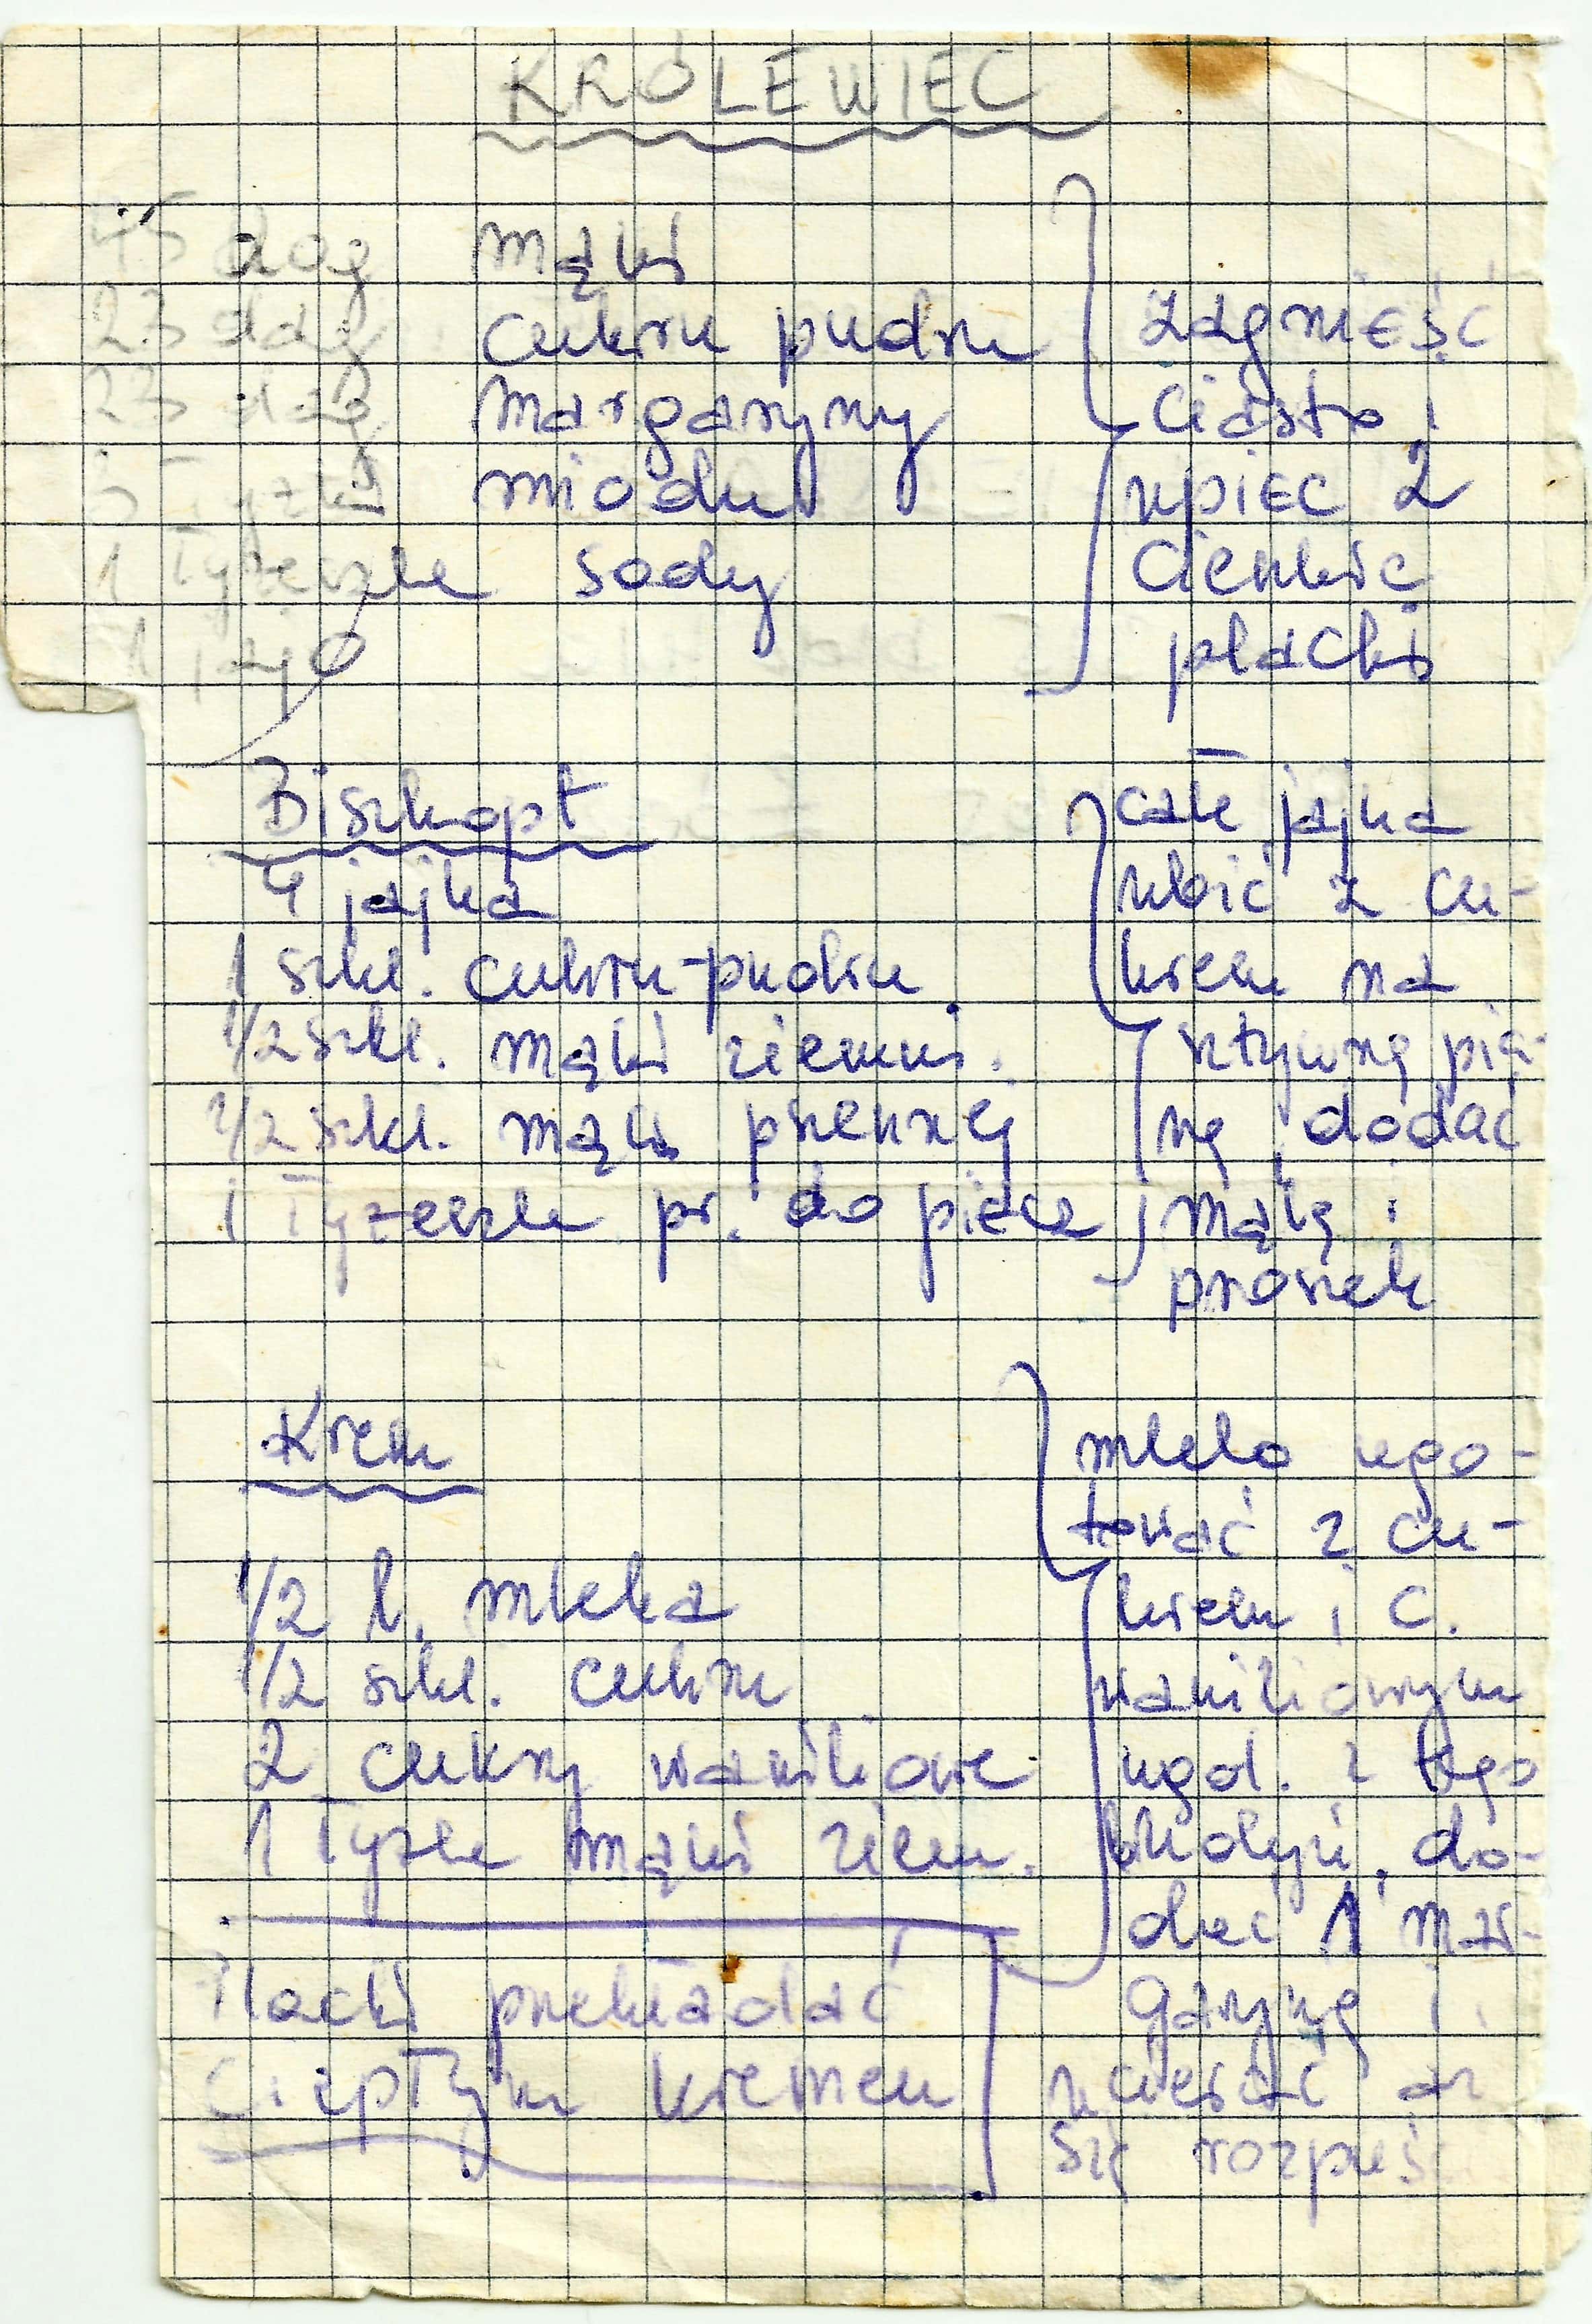 KRÓLEWIEC
45 dag mąki
23 dag cukru pudru
23 dag margaryny
łyżki miodu
1 łyżeczka sody
1 jajo
zagnieść
ciasto i
upiec 2
cienkie
placki
Biszkopt
4 jajka
1 szkl. cukru-pudru
1/2 szkl. mąki ziemni.
1/2 szkl. mąki pszennej
1 łyżeczka pr. do piecz
całe jajka
ubić z cu-
krem na
sztywną pia-
nę, dodać
mąkę i
proszek
Krem
1/2 l. mleka
1/2 szkl. cukru
2 cukry waniliowe
1 łyżka mąki ziem.
mleko ugo-
tować z cu-
krem i c.
waniliowym
ugot. z tego
budyń, do-
dać 1 mar-
garynę i
mieszać aż
się rozpuści
Placki przekładać
ciepłym kremem